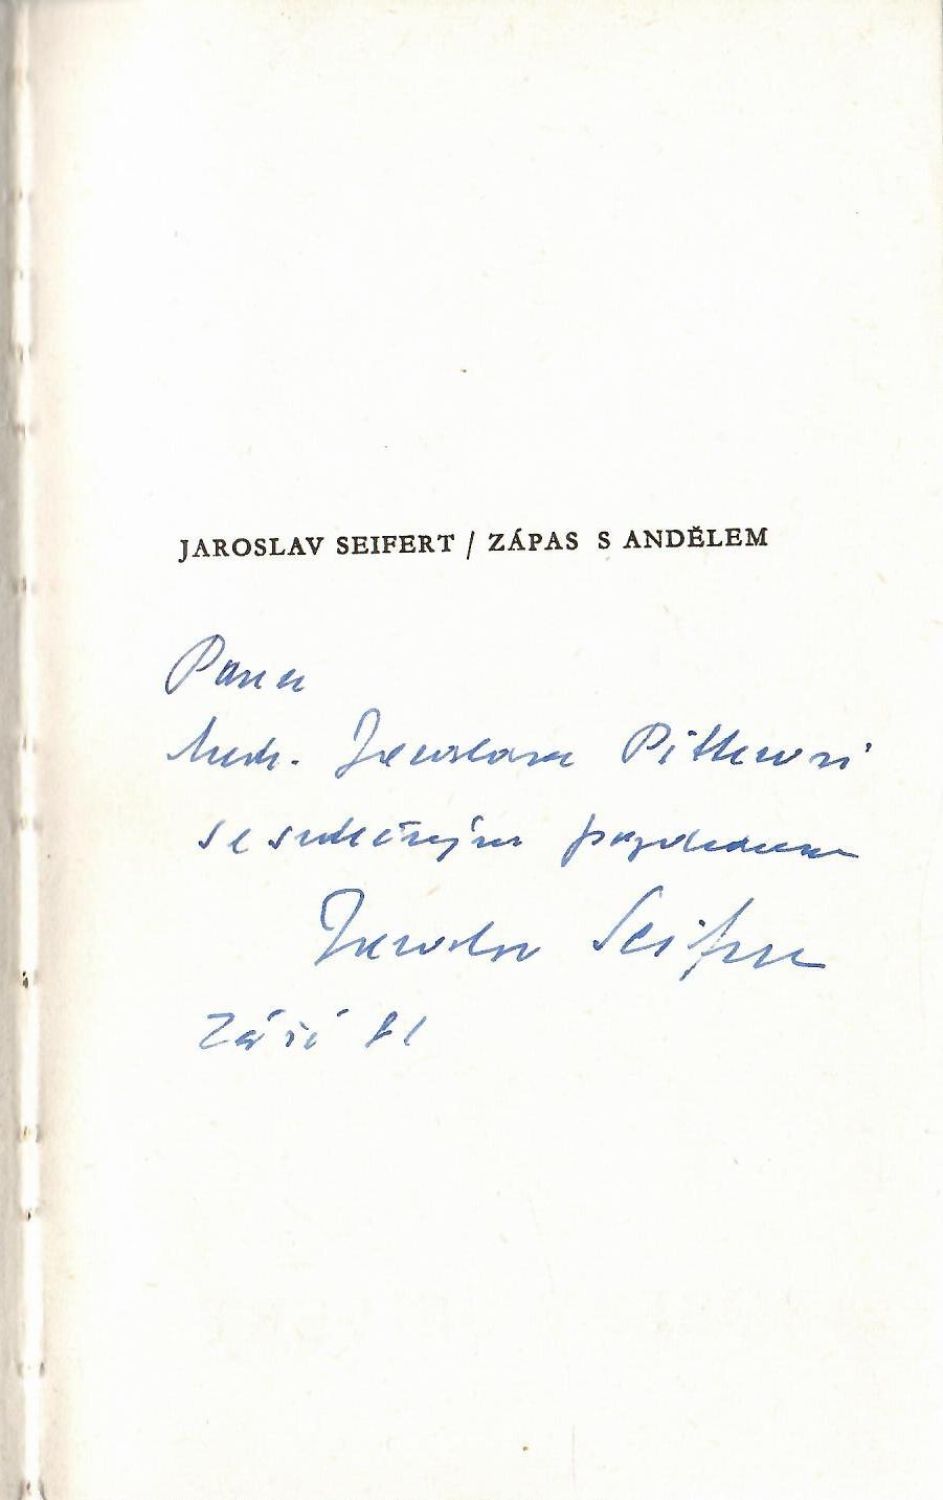 JAROSLAV SEIFERT / ZÁPAS S ANDĚLEM
Panu
Jaroslavu
se srdečným pozdravem
Jaroslav Seifert
Září 81